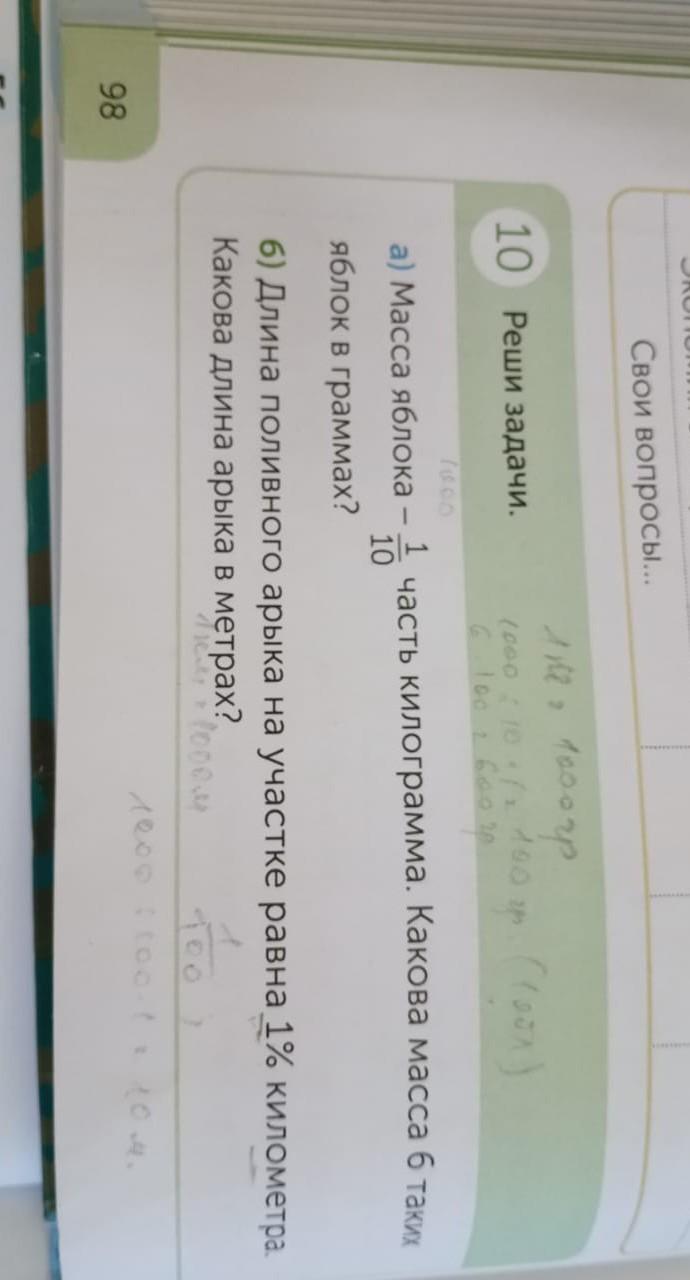 Свои вопросы...
1 кг = 1000 гр
10 Реши задачи.
1000 : 10 · 1 = 100 гр. (1 ябл)
6 · 100 = 600 гр
1000
а) Масса яблока – 1/10 часть килограмма. Какова масса 6 таких
яблок в граммах?
б) Длина поливного арыка на участке равна 1% километра.
Какова длина арыка в метрах?
1 км = 1000 м 1/100 ;
1000 : 100 · 1 = 10 м.
98